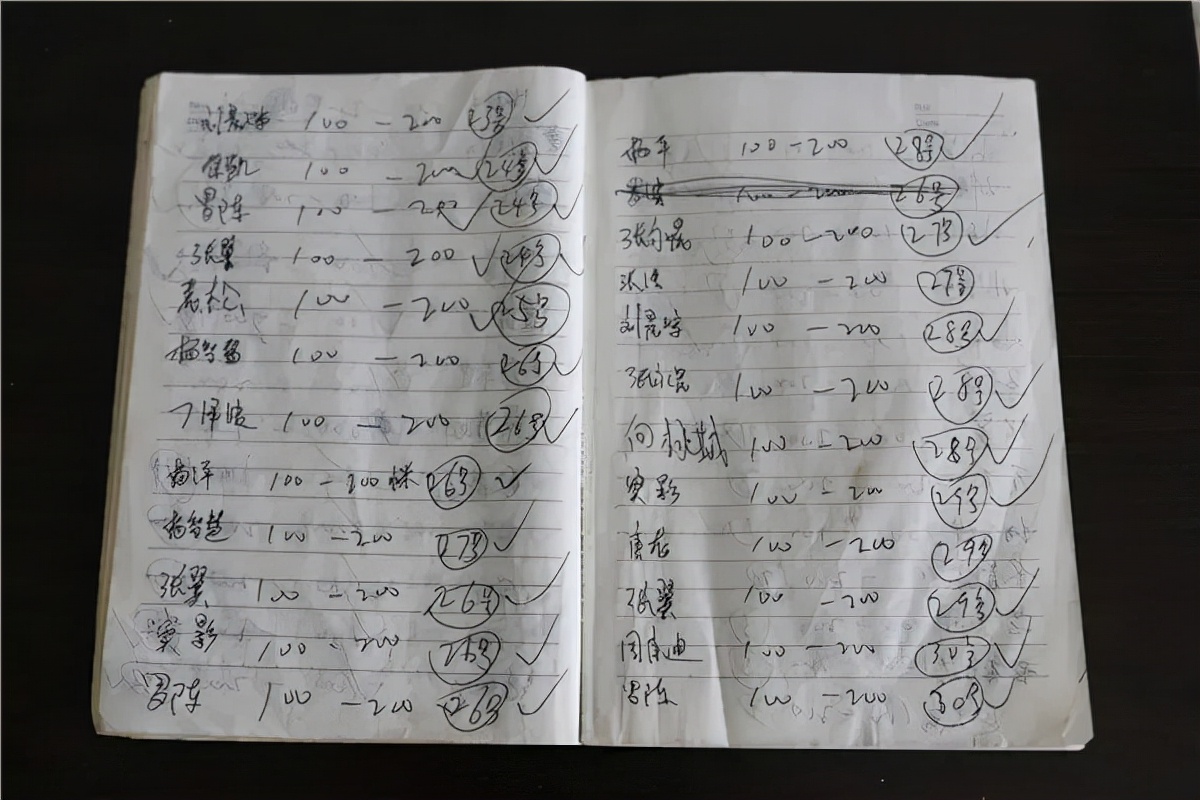 100 — 200 23号 ✓
保凯 100 — 200 24号 ✓
冒陈 100 — 200 24号 ✓
张翼 100 — 200 ✓ 24号 ✓
100 — 200 ✓ 25号
杨智慧 100 — 200 26号 ✓
丁得波 100 — 200 26号 ✓
杨洋 100 — 200 26号 ✓
杨智慧 100 — 200 27号 ✓
张翼 100 — 200 26号 ✓
窦影 100 - 200 26号 ✓
冒陈 100 — 200 26号 ✓
杨平 100 — 200 28号 ✓
100 — 200 26号
张向昆 100 — 200 27号 ✓
张 100 — 200 27号
刘晨宇 100 — 200 28号 ✓
张向昆 100 — 200 28号 ✓
向桃斌 100 — 200 28号 ✓
窦影 100 — 200 29号 ✓
唐龙 100 — 200 29号
张翼 100 — 200 29号 ✓
周康迪 100 — 200 30号 ✓
冒陈 100 — 200 30号 ✓